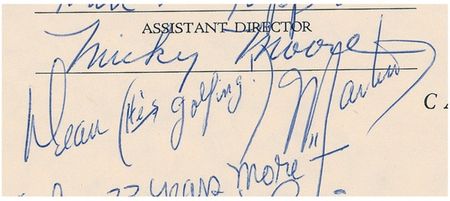 ASSISTANT DIRECTOR
Micky Moore
Dean (His golfing) Martin
C A
years more